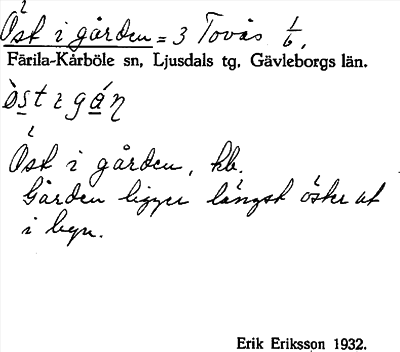 Öst i gården = 3 Tovås 1/6,
Färila-Kårböle sn, Ljusdals tg, Gävleborgs län.
òst i gǻṇ
Öst i gården, kb.
Gården ligger längst öster ut
i byn.
Erik Eriksson 1932.